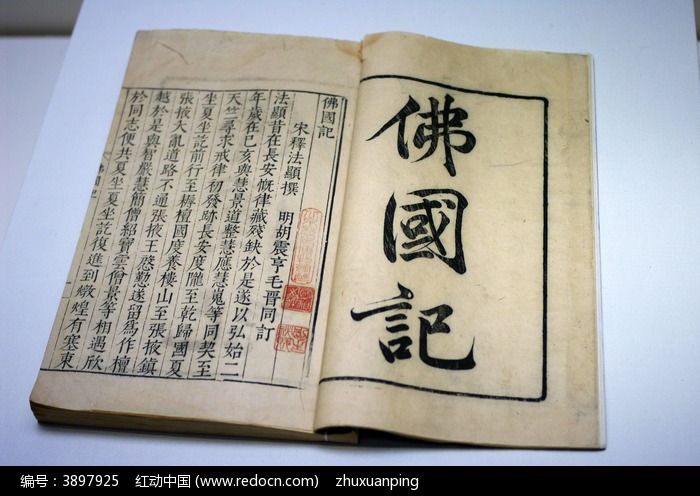 佛國記
佛國記
宋釋法顯撰 明胡震亨毛晉同訂
法顯昔在長安慨律藏殘缺於是遂以弘始二
年歲在己亥與慧景道整慧應慧嵬等同契至
天竺尋求戒律初發跡長安度隴至乾歸國夏
坐夏坐訖前行至耨檀國度養樓山至張掖鎮
張掖大亂道路不通張掖王慇懃遂留爲作檀
越於是與智嚴慧簡僧紹寶雲僧景等相遇欣
於同志便共夏坐夏坐訖復進到燉煌有塞東
编号：3897925 红动中国 (www.redocn.com) zhuxuanping